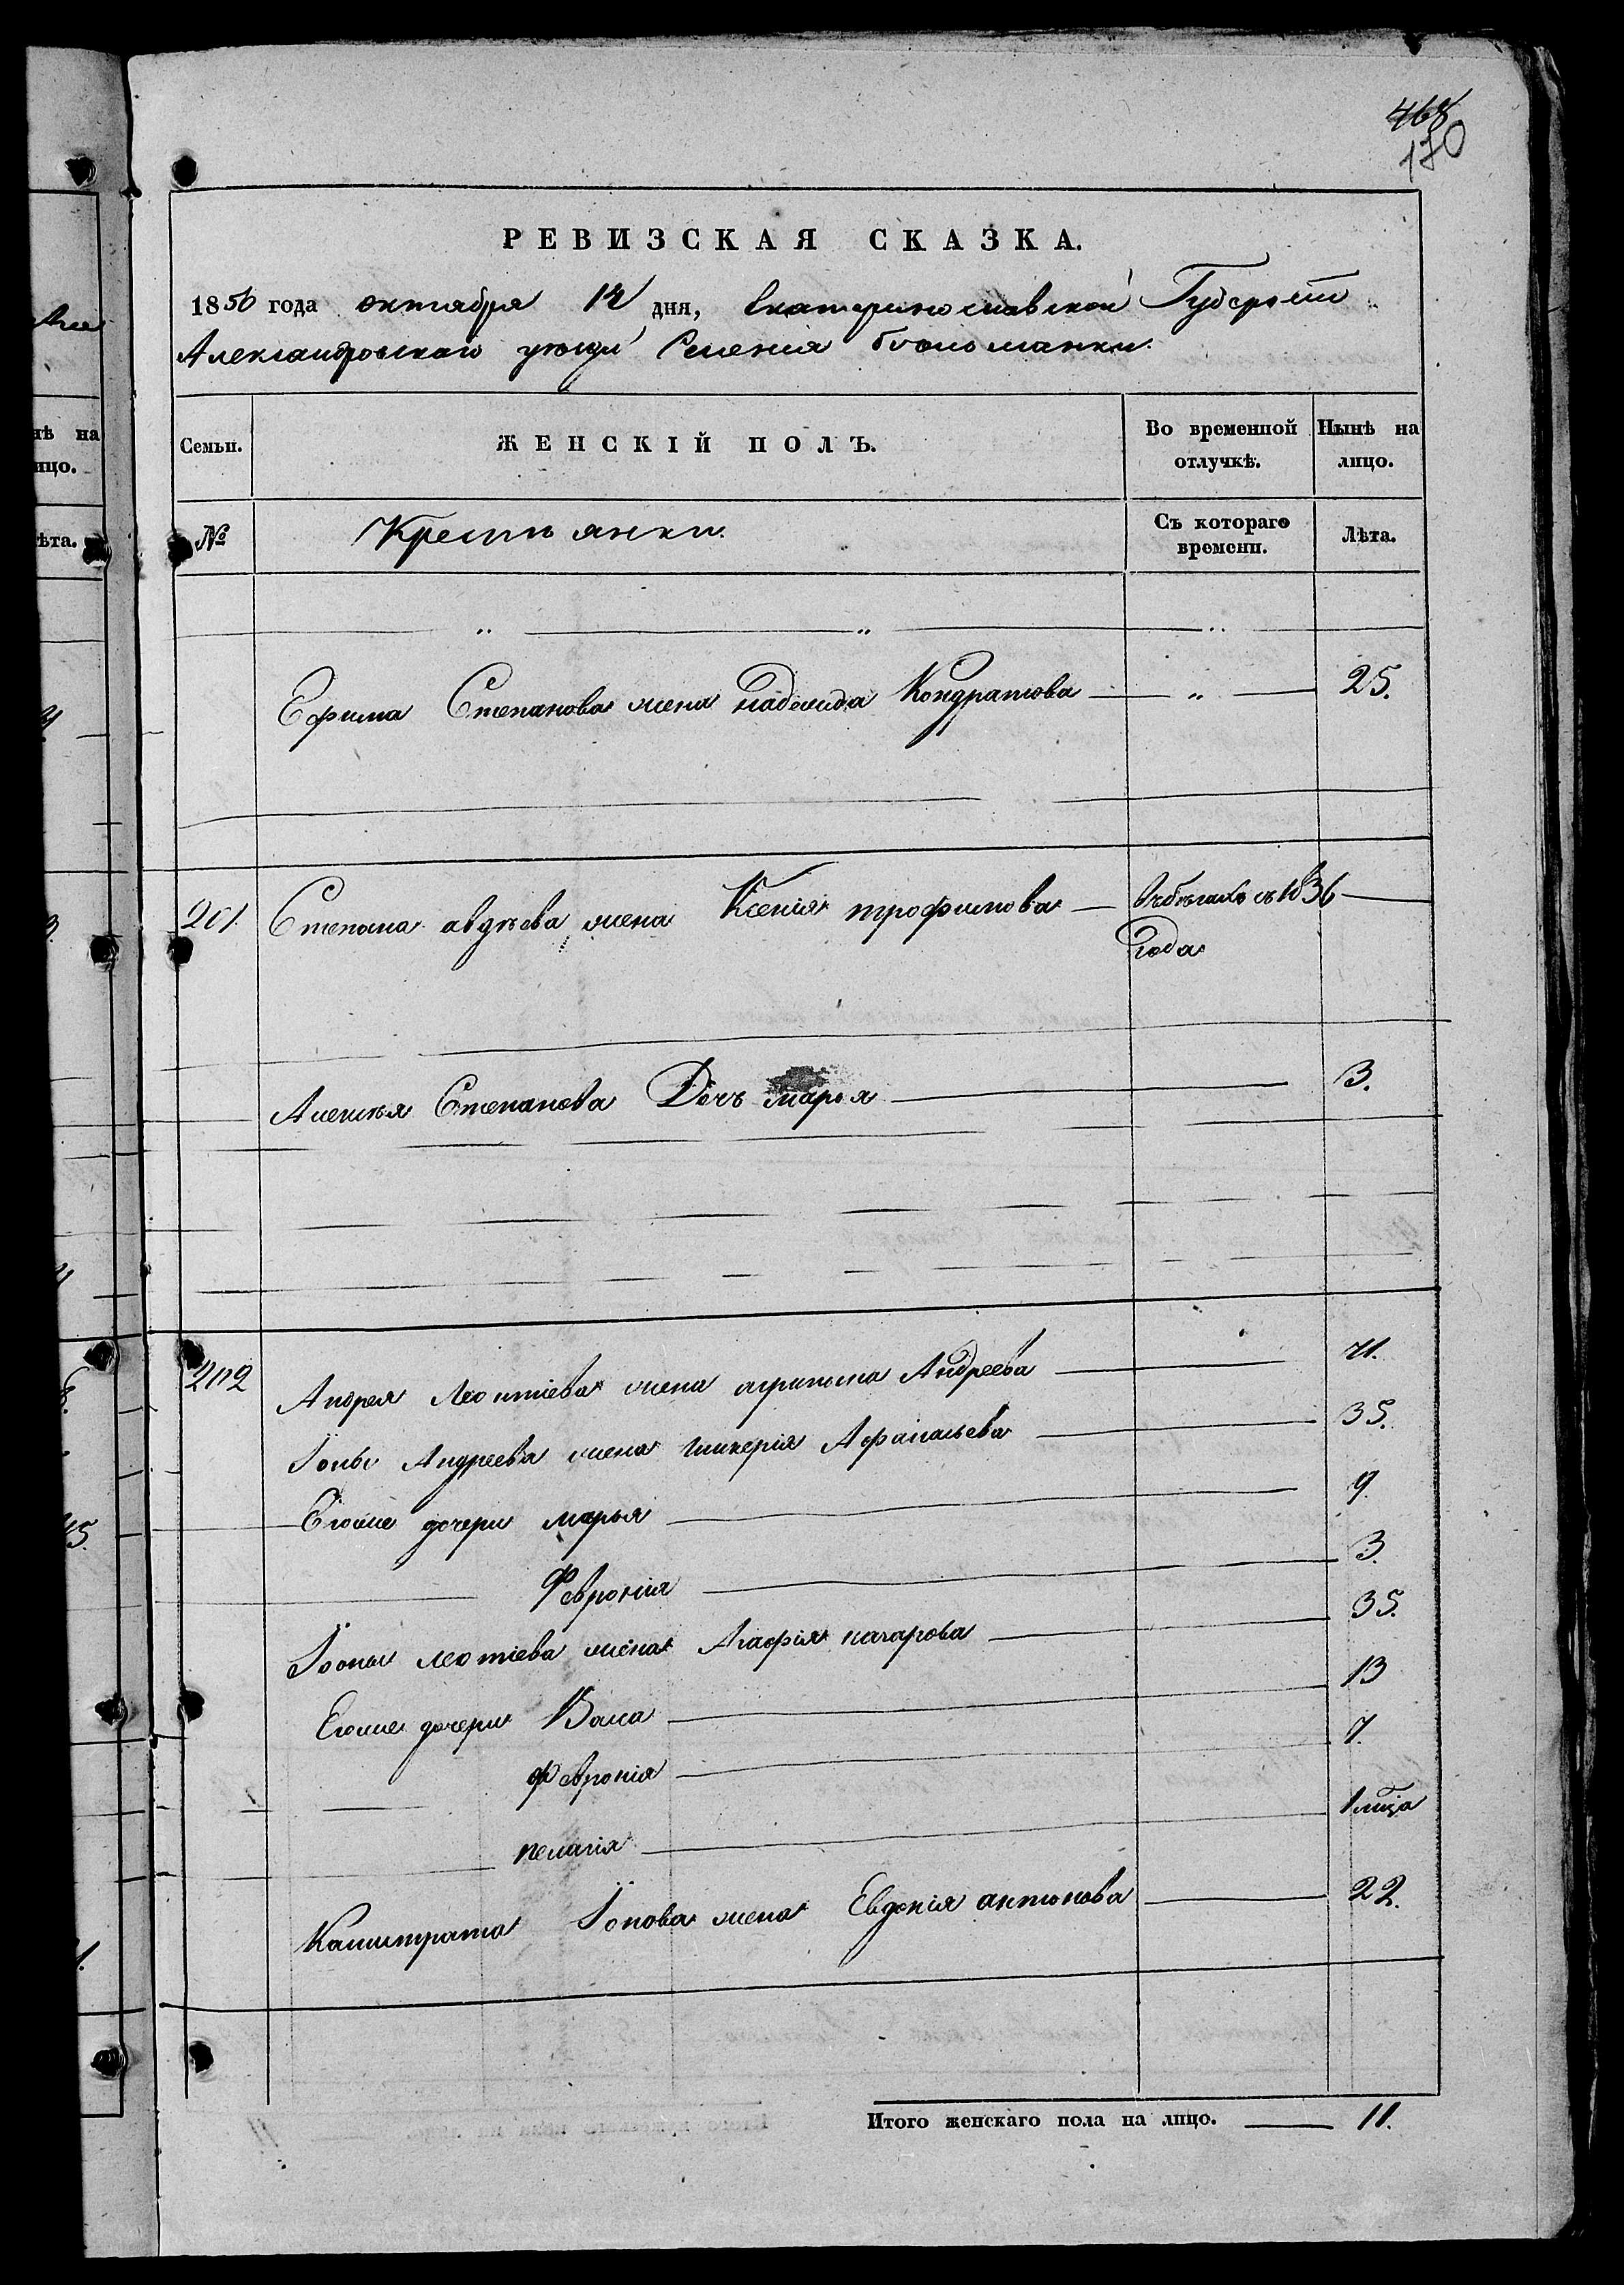 468
170
РЕВИЗСКАЯ СКАЗКА.
1850 года октября 14 дня, Екатеринославской Губерніи
Александровскаго уѣзда Селенія
Семьи. ЖЕНСКІЙ ПОЛЪ. Во временной отлучкѣ. Нынѣ на лицо.
№ Крестьянки. Съ котораго времени. Лѣта.
Ефима Степанова жена Надежда Кондратова — „ — 25.
201 Степана авдѣева жена Ксенія трофимова — въ бѣгахъ съ 1836 —
Года
Алексѣя Степанова Дочь марья — 3.
202 Андрея Леонтіева жена Андреева — 71.
Іоны Андреева жена Гликерія Афанасьева — 35.
Егоже дочери марья — 9.
Февронія — 3.
леотіева жена Агафія — 35.
Егоже дочери Васа — 13
февронія — 7.
пелагія — 1 мѣсяца
Калистрата Іонова жена Евдокія антонова — 22.
Итого женскаго пола на лицо. — 11.